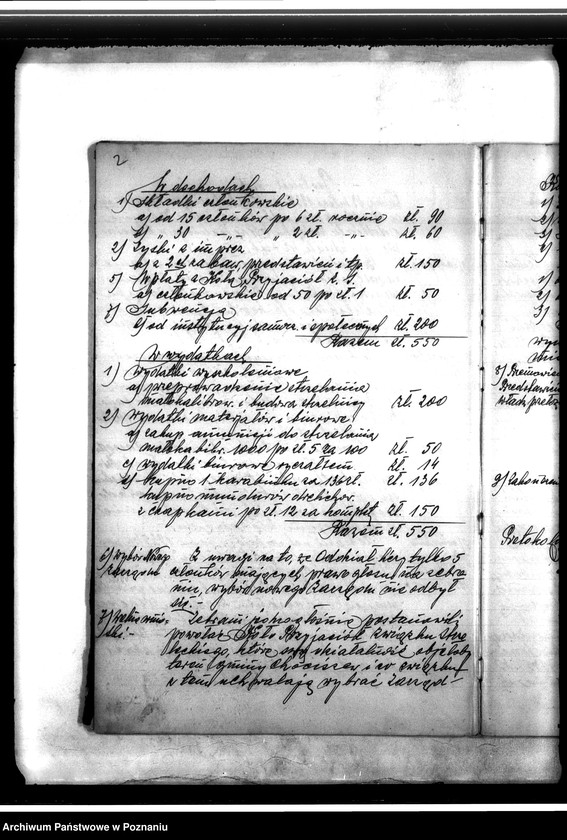 2
W dochodach
1) Składki członkowskie
a) od 15 członków po 6 zł. rocznie zł. 90
b) „ 30 -„- „ 2 zł. -„- zł. 60
2) Zyski z imprez
b) z 2 zabaw, przedstawień i t.p. zł. 150
3) Wpłaty z Koła Przyjaciół Z. S.
a) członkowskie od 50 po zł. 1 zł. 50
Subwencja
od instytucyj samorz. i społecznych zł. 200
Razem zł. 550
W wydatkach
1) Wydatki wyszkoleniowe
a) przeprowadzenie strzelania
małokalibrow. i budowa strzelnicy zł. 200
2) Wydatki materjałów i biurowe
a) zakup amunicji do strzelania
małokalibr. 1000 po zł. 5 za 100 zł. 50
c) wydatki biurowe ryczałtem zł. 14
kupno 1 karabinka za 136 zł. zł. 136
kupno mundurów
z czapkami po zł. 12 za komplet zł. 150
Razem zł. 550
6) Wybór Z uwagi na to, że Oddział liczy tylko 5
zarządu członków mających prawo głosu na zebra-
niu, wybór nowego zarządu nie odbył
się.-
7) Wolne wnio- Zebrani jednogłośnie postanowili
ski.- powołać Koło Przyjaciół Związku Strze-
leckiego, które swą działalność obejmie
teren gminy i w związku
z tem uchwalają wybrać zarząd-
Archiwum Państwowe w Poznaniu